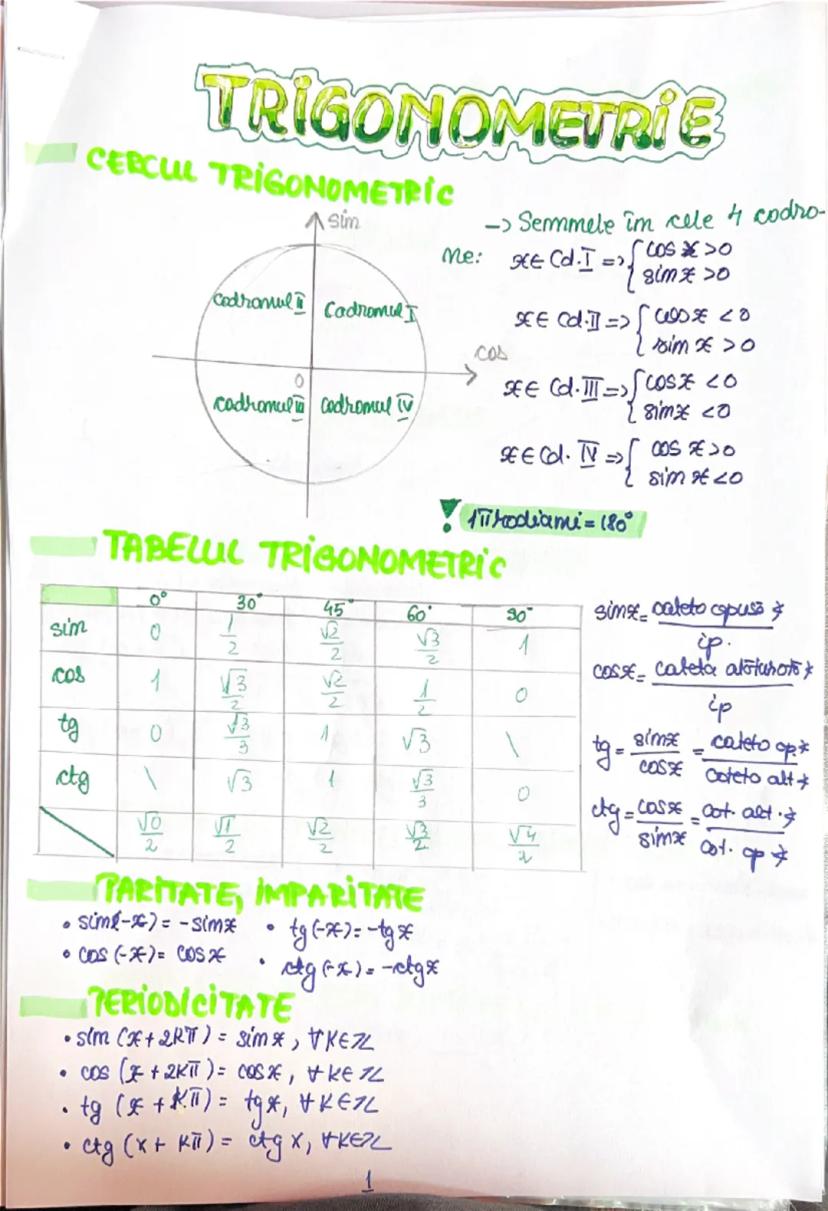 TRIGONOMETRIE
CERCUL TRIGONOMETRIC
sin
cos
0
Cadranul II
Cadranul I
Cadranul III
Cadranul IV
-> Semnele în cele 4 cadra-
ne: x∈ Cd.I => { cos x >0
sin x >0
x∈ Cd.II => { cos x <0
sin x >0
x∈ Cd.III => { cos x <0
sin x <0
x∈ Cd. IV => { cos x >0
sin x <0
! 1π radiani = 180°
TABELUL TRIGONOMETRIC
0° 30° 45° 60° 90°
sin 0 1/2 √2/2 √3/2 1
cos 1 √3/2 √2/2 1/2 0
tg 0 √3/3 1 √3 \
ctg \ √3 1 √3/3 0
√0/2 √1/2 √2/2 √3/2 √4/2
sin x = cateta opusă x / ip.
cos x = cateta alăturată x / ip
tg = sin x / cos x = cateta op. x / cateta alt x
ctg = cos x / sin x = cat. alt. x / cat. op x
PARITATE, IMPARITATE
• sin(-x) = -sin x • tg(-x) = -tg x
• cos (-x) = cos x • ctg (-x) = -ctg x
PERIODICITATE
• sin (x + 2kπ) = sin x, ∀k∈ℤ
• cos (x + 2kπ) = cos x, ∀k∈ℤ
• tg (x + kπ) = tg x, ∀k∈ℤ
• ctg (x + kπ) = ctg x, ∀k∈ℤ
1